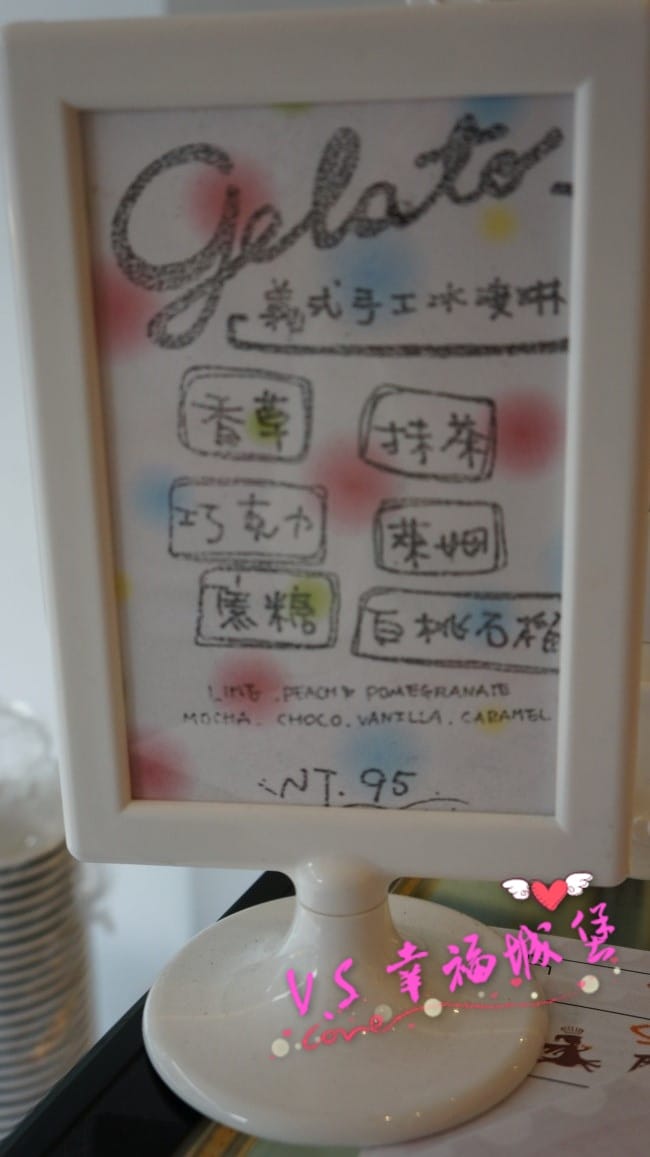 gelato
義式手工冰淇淋
香草 抹茶
巧克力 萊姆
焦糖 白桃石榴
LIME . PEACH & POMEGRANATE
MOCHA . CHOCO . VANILLA . CARAMEL
NT. 95
V.S 幸福城堡
Love